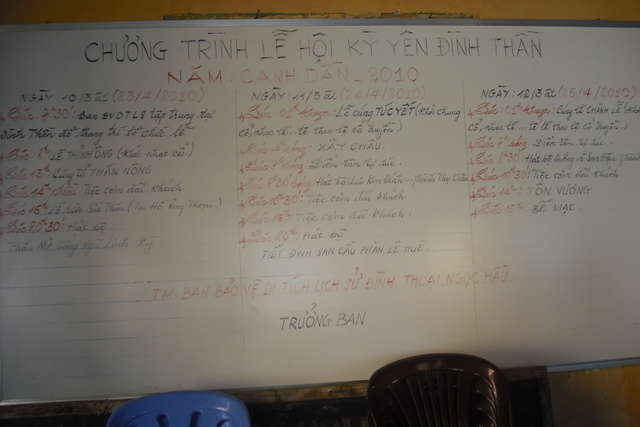 CHƯƠNG TRÌNH LỄ HỘI KỲ YÊN ĐÌNH THẦN
NĂM: CANH DẦN - 2010
NGÀY: 10/3 âl (23/4/2010)
- Lúc 7h30: Ban BVDTLS tập trung tại
Đình Thần để trang trí tổ chức lễ
- Lúc 8h LỄ THỈNH ÔNG (Khởi nhạc cổ)
- Lúc 13h Cúng tế THẦN NÔNG
- Lúc 14h Tiệc cơm đãi khách
- Lúc 16h Lễ Sắc Thần
- Lúc 20h30: Hát bộ
NGÀY: 11/3 âl (24/4/2010)
- Lúc 01h khuya: Lễ cúng TÚC YẾT (Khởi chung
cổ, nhạc tế lễ theo lệ cổ truyền)
- Lúc sáng: XÂY CHẦU.
- Lúc 7h sáng: Viếng tán tự túc.
- Lúc 8h30 sáng: Hát bộ
- Lúc 10h30: Tiệc cơm đãi khách
- Lúc 16h: Tiệc cơm đãi khách.
- Lúc 20h: Hát bộ
TIẾT ĐINH SAN CẦU PHÀN LÊ HUÊ.
NGÀY: 12/3 âl (25/4/2010)
- Lúc 01h khuya: Cúng tế CHÁNH LỄ (Khởi
cổ, nhạc tế lễ theo lệ cổ truyền).
- Lúc 7h sáng: Viếng tán tự túc.
- Lúc 8h30: Hát bộ
- Lúc 10h30: Tiệc cơm đãi khách.
- Lúc 14h: TÔN VƯƠNG
- Lúc 15h: BẾ MẠC
TM: BAN BẢO VỆ DI TÍCH LỊCH SỬ ĐÌNH THOẠI NGỌC HẦU.
TRƯỞNG BAN